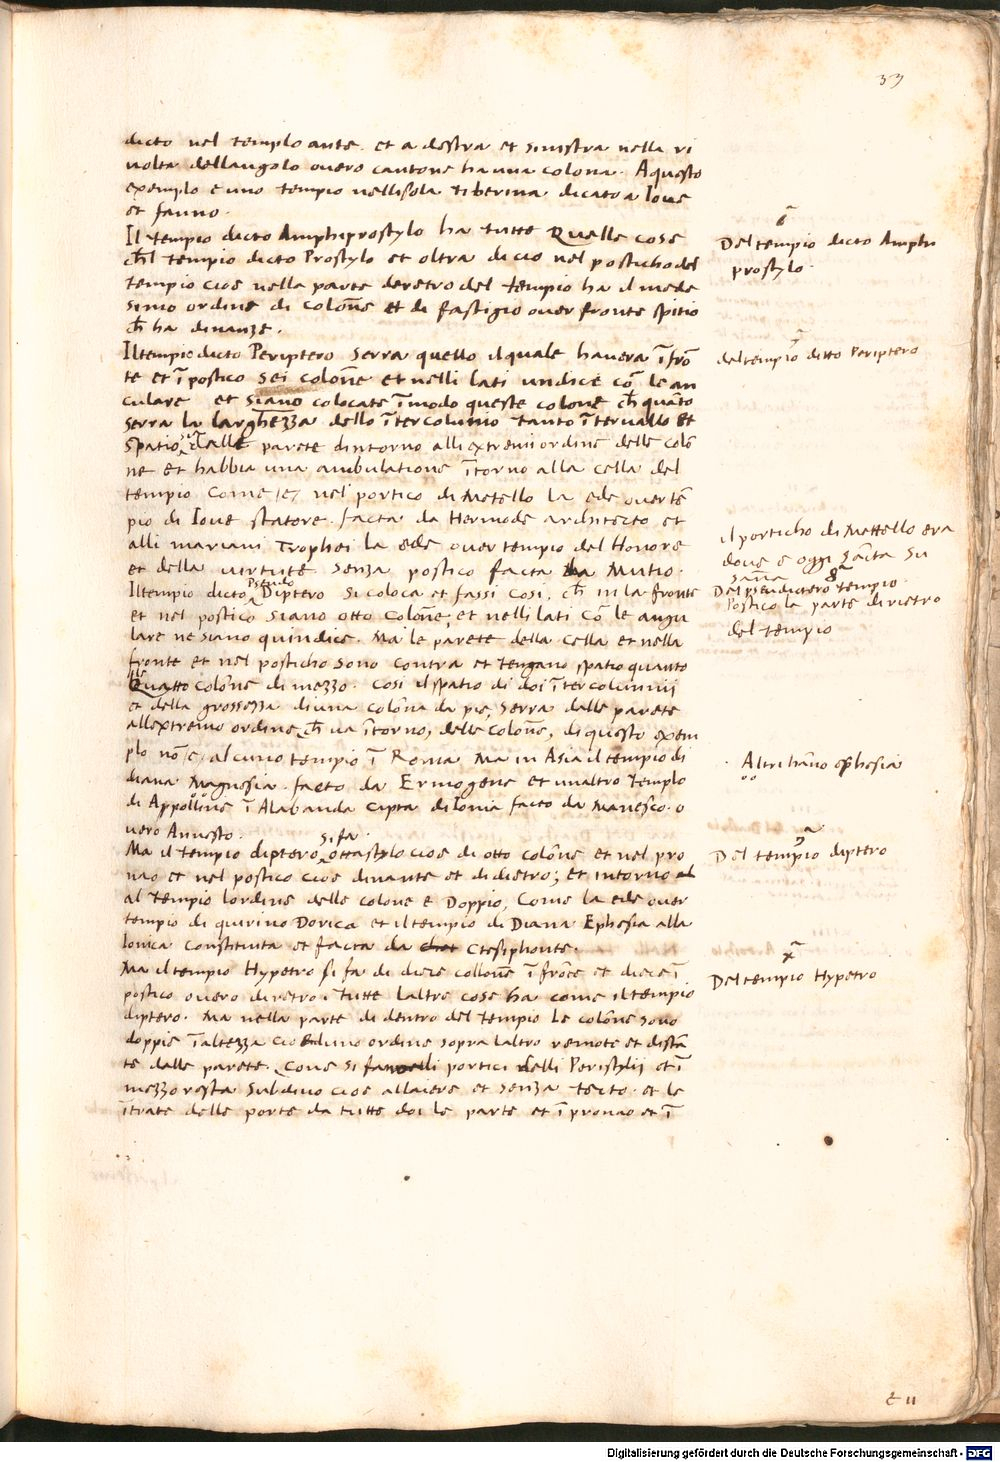 39
dicto nel templo ante. et a destra et sinistra nella ri
volta dellangolo overo cantone ha una colona. A questo
exemplo e uno tempio nellisola tiberina dicato a Iove
et fauno.
Il tempio dicto Amphiprostylo ha tutte Quelle cose
ch̄l tempio dicto Prostylo et oltra di cio nel posticho del
tempio cioe nella parte deretro del tempio ha il mede
simo ordine di colon̄e et di fastigio over fronte spitio
ch̄ ha dinanze.
Il tempio dicto Periptero serra quello il quale havera ī frō
te et ī postico sei colon̄e et nelli lati undice cō le an
culare et siano colocate ī modo queste colone ch̄ quāto
serra la larghezza dello ītercolunio tanto ītervallo et
spatio dalle parete dintorno alli extremi ordine delle colō
ne et habbia una ambulatione ītorno alla cella del
tempio Come e nel portico di Metello la ede over tē
pio di Iove statore. facta da Hermode architecto et
alli mariani Trophei la ede over tempio del Honore
et della virtute senza postico facta da Mutio.
Il tempio dicto Pseudo Diptero si coloca et fassi cosi, ch̄ in la fronte
et nel posticō siano otto colon̄e, et nelli lati cō le angu
lare ne siano quindice. Ma le parete della cella et nella
fronte et nel posticho sono contra et tengano spatio quanto
Quatto colōne di mezzo. cosi il spatio di doi ītercolumnii
et della grossezza di una colōna da pie, serra dalle parete
all extremo ordine, ch̄ va ītorno, delle colon̄e, di questo exem
plo nō e, alcuno tempio ī Roma. Ma in Asia il tempio di
diana Magnesia. facto da Ermogene et unaltro templo
di Appolline ī Alabanda cipta di Ionia facto da Manesco. o
vero Annesto.
Ma il tempio diptero si fa ottastylo cioe di otto colōne et nel pro
nao et nel postico cioe dinante et didietro; et intorno al
al tempio lordine delle colone e doppio, come la ede over
tempio di quirino Dorica et il tempio di Diana Ephesia alla
Ionica constituta et facta da Ctesiphonte.
Ma il tempio Hypetro si fa di diece collon̄e ī frōte et diece ī
postico overo diretro ī tutte laltre cose ha come il tempio
diptero. Ma nella parte di dentro del tempio le colōne sono
doppie ī altezza cioe duno ordine sopra laltro remote et distā
te dalle parete. Come si fa nelli portici delli Peristylii et ī
mezzo resta subdivo cioe allaiere et senza tecto. et le
ītrate delle porte da tutte doi le parte et ī pronao et ī
Del tempio dicto Amphi
prostylo.
del tempio ditto Periptero
il porticho di Mettello era
dove e oggi Sācta Su
sanna
Del pseudictero tempio.
Postico la parte diretro
del tempio
Altri hāno ephesia
Del tempio diptero
Del tempio Hypetro
e ii
Digitalisierung gefördert durch die Deutsche Forschungsgemeinschaft - DFG